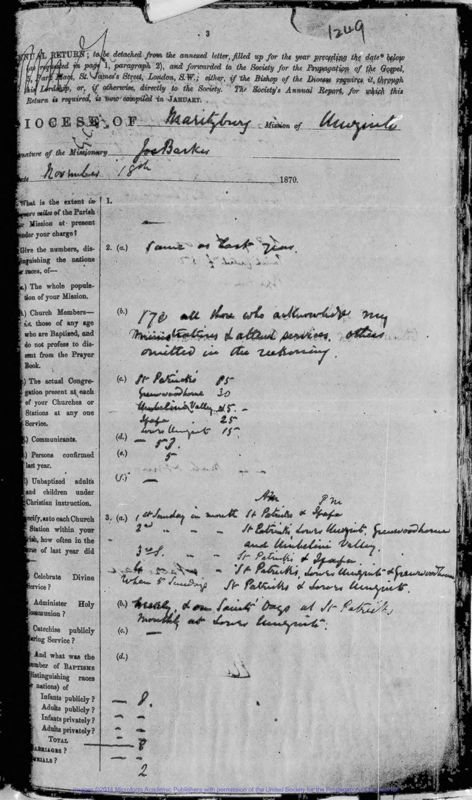 3
1249
ANNUAL RETURN; to be detached from the annexed letter, filled up for the year preceding the date* below
(as requested in page 1, paragraph 2), and forwarded to the Society for the Propagation of the Gospel,
7, Park Place, St. James's Street, London, S.W.; either, if the Bishop of the Diocese requires it, through
his Lordship, or, if otherwise, directly to the Society. * The Society's Annual Report, for which this
Return is required, is now compiled in JANUARY.
DIOCESE OF Maritzburg Mission of Umzinto
Signature of the Missionary Jos Barker
Date November 18th 1870.
What is the extent in
square miles of the Parish
or Mission at present
under your charge?
1. —
Give the numbers, dis-
tinguishing the nations
or races, of—
) The whole popula-
tion of your Mission.
2. (a.) Same as last year.
) Church Members—
i.e. those of any age
who are Baptized, and
do not profess to dis-
sent from the Prayer
Book.
(b.) 170 all those who acknowledge my
ministrations & attend services. others
omitted in the reckoning.
) The actual Congre-
gation present at each
of your Churches or
Stations at any one
Service.
(c.) St Patricks 85
Greenwoodhome 30
Umhelini Valley 25. -
Ifafa 25
Lower Umzinto 15.
) Communicants.
(d.) — 53.
) Persons confirmed
last year.
(e.) 5
) Unbaptized adults
and children under
Christian instruction.
(f.) —
AM PM
Specify, as to each Church
or Station within your
Parish, how often in the
course of last year did
3. (a.) 1st Sunday in month St Patricks & Ifafa
2nd " " St Patricks, Lower Umzinto, Greenwoodhome
and Umhelini Valley.
3rd. " " St Patricks & Ifafa.
4 " St Patricks, Lower Umzinto & Greenwoodhome
When 5 Sundays St Patricks & Lower Umzinto.
Celebrate Divine
Service?
Administer Holy
Communion?
(b.) & on Saints' Days at St Patricks
monthly at Lower Umzinto.
Catechise publicly
during Service?
(c.) —
And what was the
number of BAPTISMS
(distinguishing races
or nations) of
(d.)
Infants publicly? — 8.
Adults publicly? - -
Infants privately? - -
Adults privately? - -
TOTAL 8
MARRIAGES? - -
BURIALS? 2
Images ©2018 Microform Academic Publishers with permission of the United Society for the Propagation of the Gospel